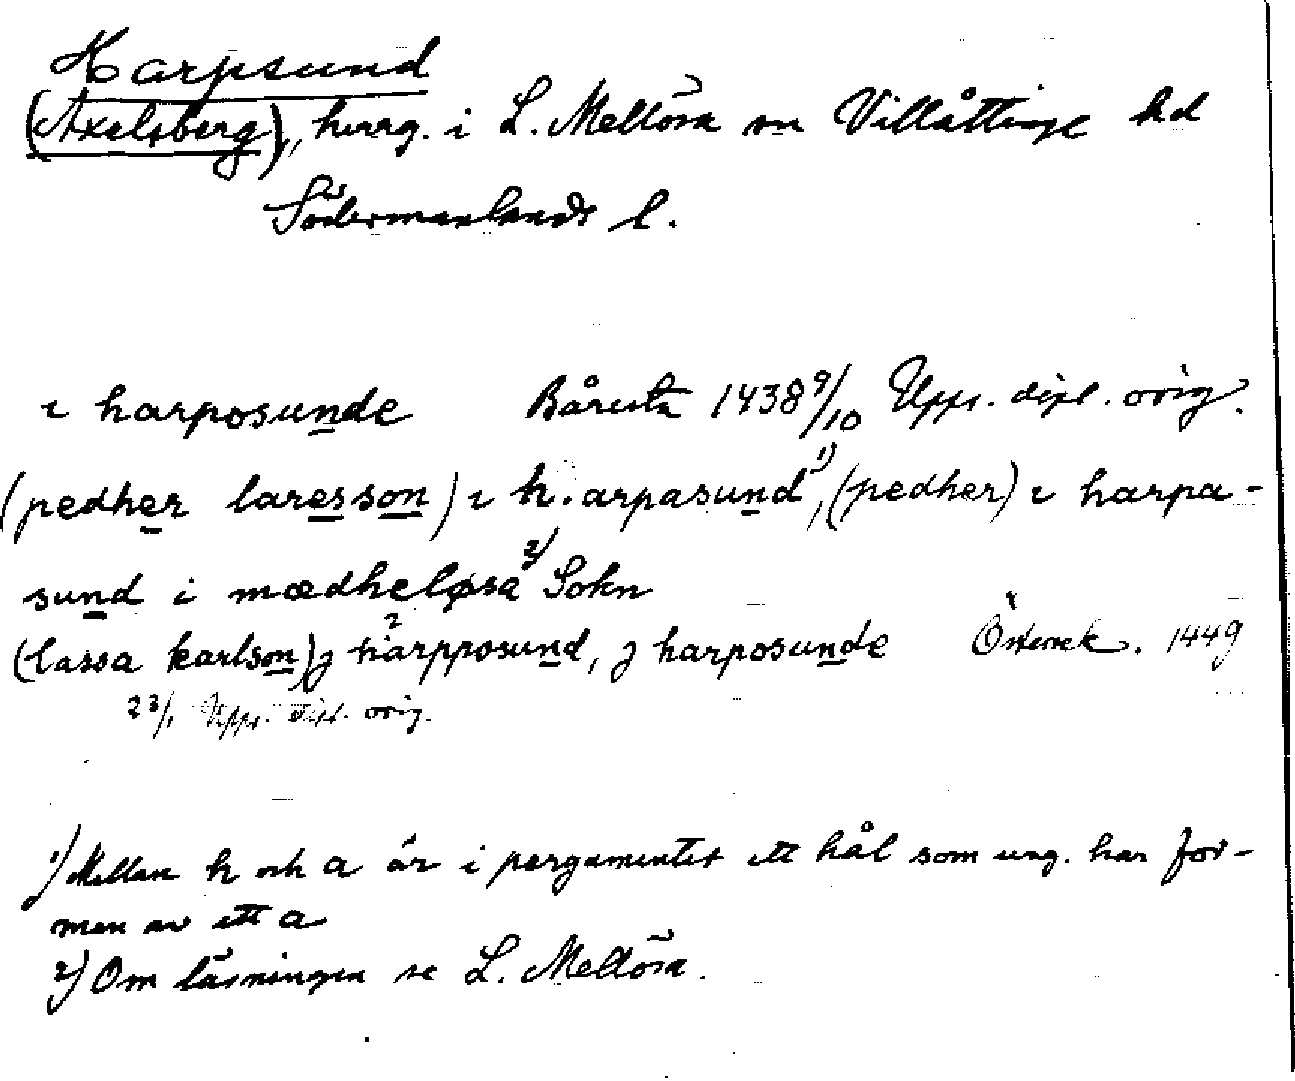 Harpsund
(Axelsberg), herrg. i L. Mellösa sn Villåttinge hd
Södermanlands l.
ı harposunde Bårsta 1438 9/10 Upps. dipl. orig.
(pedher laresson) ı h.arpasund 1), (pedher) ı harpa-
sund i mædheløsa 2) Sokn
(lassa karlson) j harpposund, j harposunde Österåk. 1449
23/1 Upps. dipl. orig.
1) Mellan h och a är i pergamentet ett hål som ung. har for-
men av ett a
2) Om läsningen se L. Mellösa.